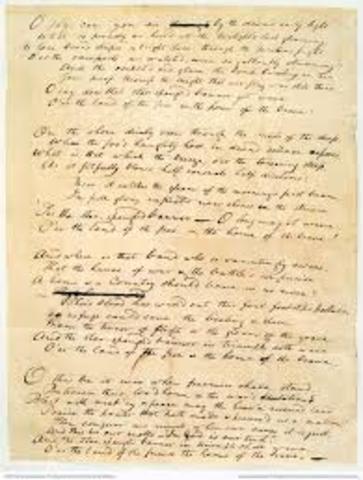 O say can you see by the dawn's early light
What so proudly we hail'd at the twilight's last gleaming,
Whose broad stripes & bright stars through the perilous fight
O'er the ramparts we watch'd, were so gallantly streaming?
And the rocket's red glare, the bomb bursting in air,
Gave proof through the night that our flag was still there
O say does that star-spangled banner yet wave
O'er the land of the free & the home of the brave?
On the shore dimly seen through the mists of the deep,
Where the foe's haughty host in dread silence reposes,
What is that which the breeze, o'er the towering steep,
As it fitfully blows, half conceals, half discloses?
Now it catches the gleam of the morning's first beam,
In full glory reflected now shines in the stream,
'Tis the star-spangled banner — O long may it wave
O'er the land of the free & the home of the brave!
And where is that band who so vauntingly swore,
That the havoc of war & the battle's confusion
A home & a Country should leave us no more?
Their blood has wash'd out their foul footstep's pollution
No refuge could save the hireling & slave
From the terror of flight or the gloom of the grave,
And the star-spangled banner in triumph doth wave
O'er the land of the free & the home of the brave.
O thus be it ever when freemen shall stand
Between their lov'd home & the war's desolation!
Blest with vict'ry & peace may the heav'n rescued land
Praise the power that hath made & preserv'd us a nation!
Then conquer we must, when our cause it is just,
And this be our motto — "In God is our trust,"
And the star-spangled banner in triumph shall wave
O'er the land of the free & the home of the brave. —